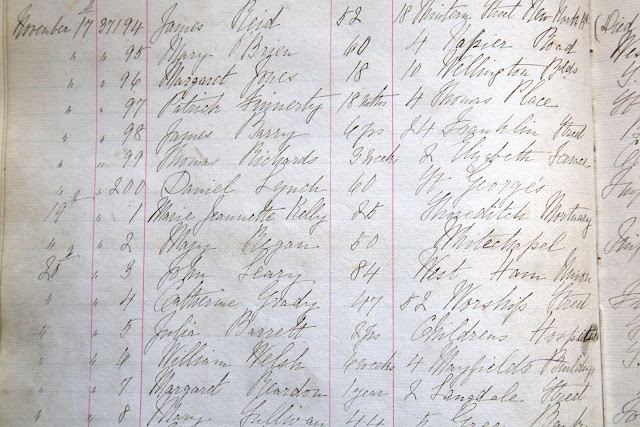 November 17 37194 James Reid 52 18 Street New North Rd (Died
" " 95 Mary O'Brien 60 4 Napier Road
" " 96 Margaret Jones 18 10 Wellington Blds
" " 97 Patrick Finnerty 18 mths 4 Thomas Place
" " 98 James Barry 6 yrs 24 Franklin Street
" " 99 Thomas Richards 3 weeks 2 Elizbeth
" " 200 Daniel Lynch 60 St George's
19th " 1 Marie Jeannette Kelly 25 Shoreditch Mortuary
" " 2 Mary Regan 50 Whitechapel
20th " 3 John Leary 84 West Ham Union
" " 4 Catherine Grady 47 52 Worship Street
" " 5 Julia Barrett 2 yrs Childrens Hospital
" " 6 William Welsh 6 weeks 4 Mayfields Buildings
" " 7 Margaret Reardon 1 year 2 Langdale Street
" " 8 Mary Sullivan 44 5 Green Bank